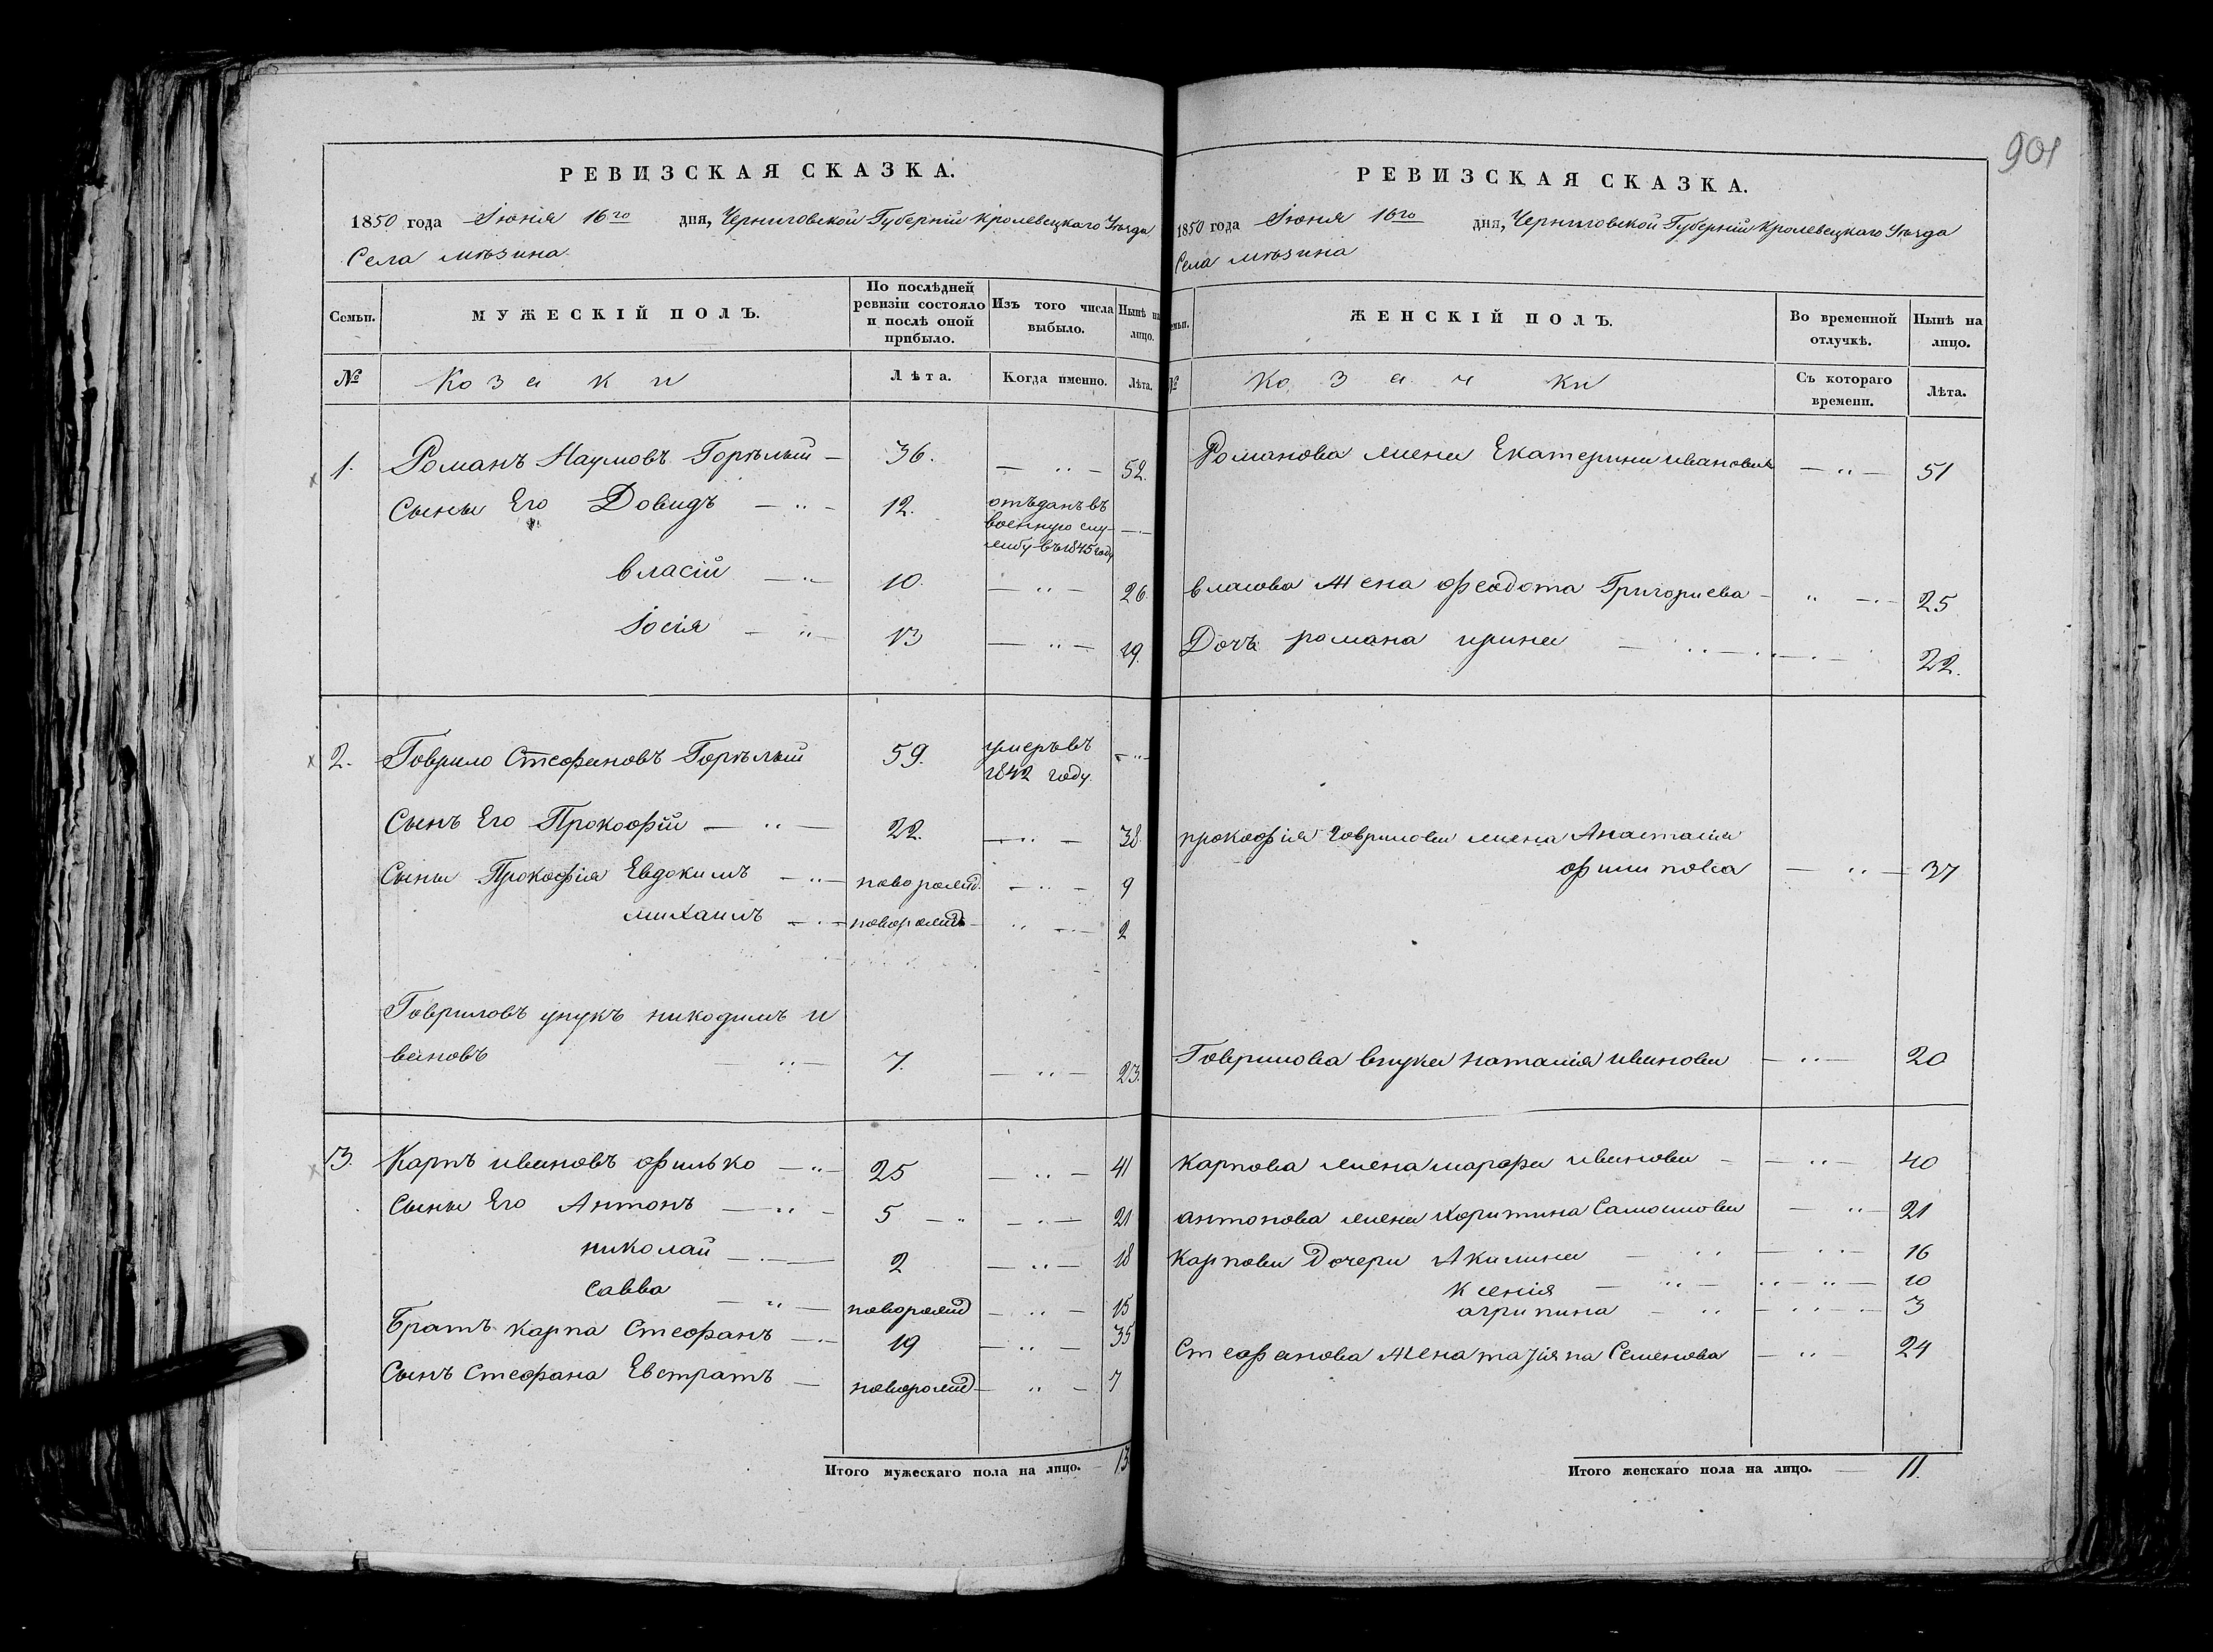 901
РЕВИЗСКАЯ СКАЗКА.
1850 года Іюня 16го дня, Черниговской Губерніи Кролевецкаго Уѣзда
Села Мѣзина
Семьи. МУЖЕСКІЙ ПОЛЪ. По послѣдней ревизіи состояло и послѣ оной прибыло. Изъ того числа выбыло. Нынѣ на лицо.
№ Козаки Лѣта. Когда именно. Лѣта.
1. Романъ Наумовъ Горѣлый 36. — „ — 52.
Сыны Его Довидъ — „ — 12. отъданъ въ
военную слу-
жбу въ 1845 году
Власій — „ — 10. — „ — 26.
Іосія — „ — 13 — „ — 29.
2. Говрило Стефановъ Горѣлый 59. умеръ въ — „ —
1842 году.
Сынъ Его Прокофій — „ — 22. — „ — 38.
Сыны Прокофія Евдокимъ — „ — наворожд. — „ — 9
михаилъ — „ — наворожд — „ — 2
Говриловъ унукъ никодимъ и
вановъ — „ — 7. — „ — 23.
3. Карпъ ивановъ филько — „ — 25 — „ — 41
Сыны Его Антонъ — „ — 5 — „ — 21
николай — „ — 2 — „ — 18
Савва — „ — наворожд — „ — 15
Братъ Карпа Стефанъ — „ — 19 — „ — 35
Сынъ Стефана Евстратъ — наворожд — „ — 7
Итого мужескаго пола на лицо. — 13
РЕВИЗСКАЯ СКАЗКА.
1850 года Іюня 16го дня, Черниговской Губерніи Кролевецкаго Уѣзда
Села Мѣзина
Семьи. ЖЕНСКІЙ ПОЛЪ. Во временной отлучкѣ. Нынѣ на лицо.
№ Козачки Съ котораго времени. Лѣта.
Романова жена Екатерина иванова — „ — 51
власова жена феодота Григориева — „ — 25
Дочь романа ирина — „ — 22.
прокофія говрилова жена Анастасія
филипова — „ — 37
Говрилова внука наталія иванова — „ — 20
Карпова жена марфа иванова — „ — 40
антонова жена харитина Самоилова — „ — 21
Карповы Дочери Акилина — „ — 16
Ксенія — „ — 10
агрипина — „ — 3
Стефанова жена татіяна Семенова — „ — 24
Итого женскаго пола на лицо. — 11.